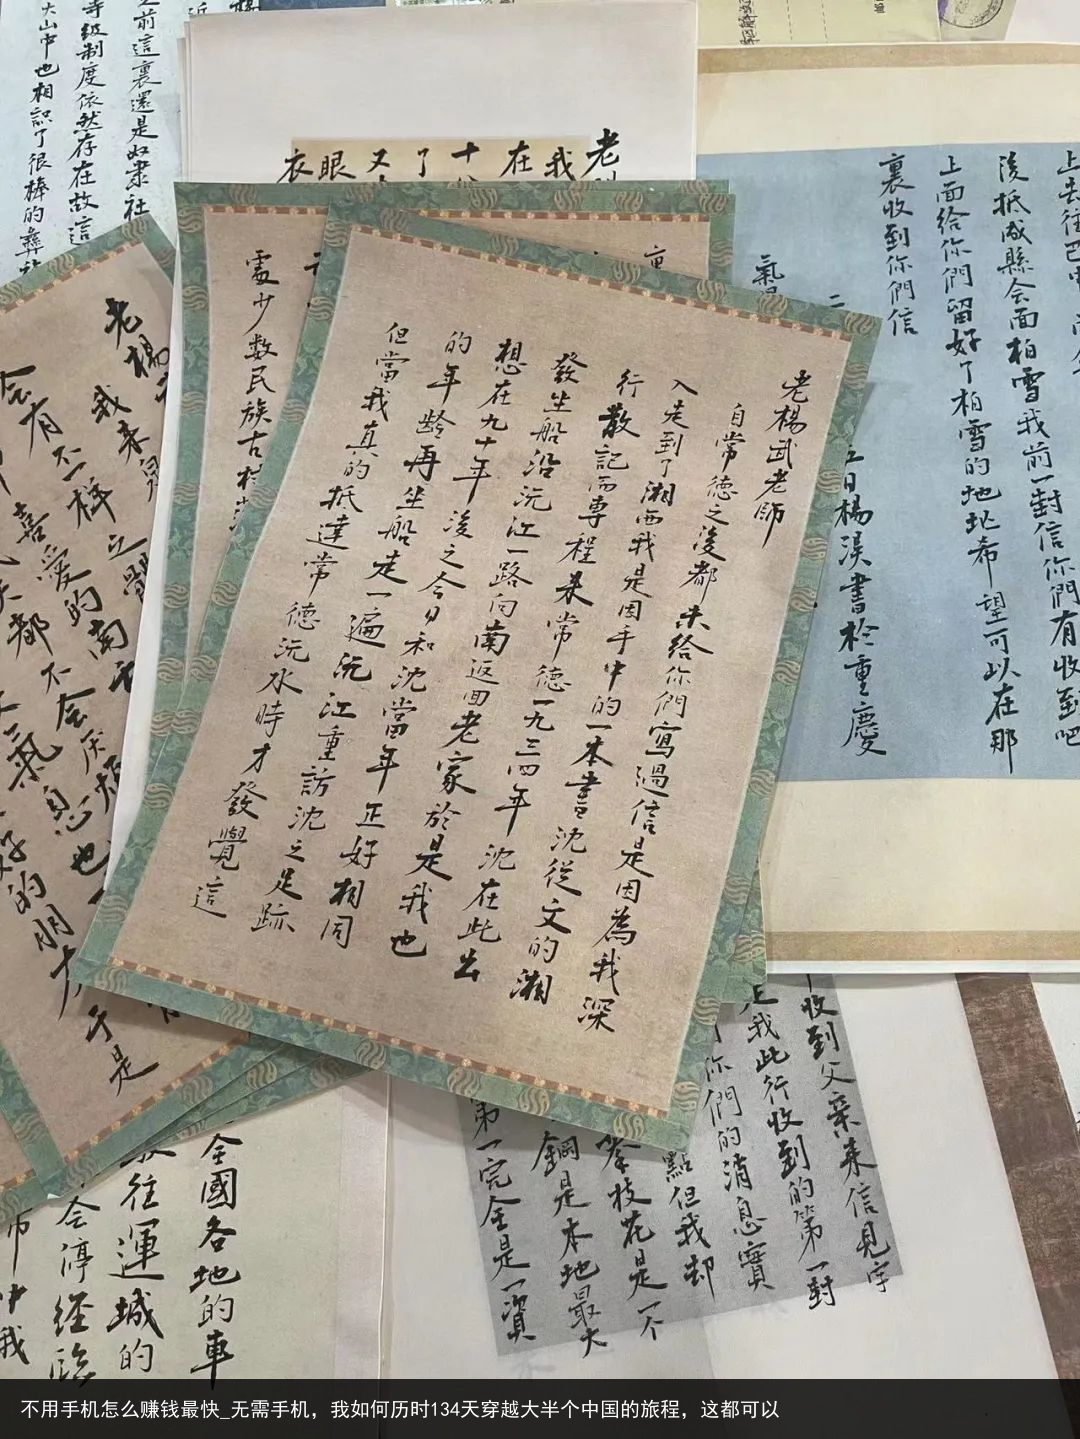 老楊武老師
自常德之後都未給你們寫過信是因為我深
入走到了湘西我是因手中的一本書沈從文的湘
行散記而專程來常德一九三四年沈在此出
發坐船沿沅江一路向南返回老家於是我也
想在九十年後之今日和沈當年正好相同
的年齡再坐船走一遍沅江重訪沈之足跡
但當我真的抵達常德沅水時才發覺這
處少數民族古村
老
我
在
十
了
又
眼
衣
前這裏還是奴隸社
等級制度依然存在故這
大山中也相識了很棒的彝
老楊
我來
會有不一樣之
喜愛的南
都不會厌煩
氣息也
好的朋友
於是
後抵成縣会面柏雪我前一對信你們有收到吧
上面給你們留好了柏雪的地址希望可以在那
裏收到你們信
日楊淏書於重慶
收到父亲来信見字
我此行收到的第一封
你們的消息實
點但我却
拳枝花是一个
鋼是本地最大
第一完全是一資
全國各地的車
往運城的
会停經臨
中我
不用手机怎么赚钱最快_无需手机，我如何历时134天穿越大半个中国的旅程，这都可以